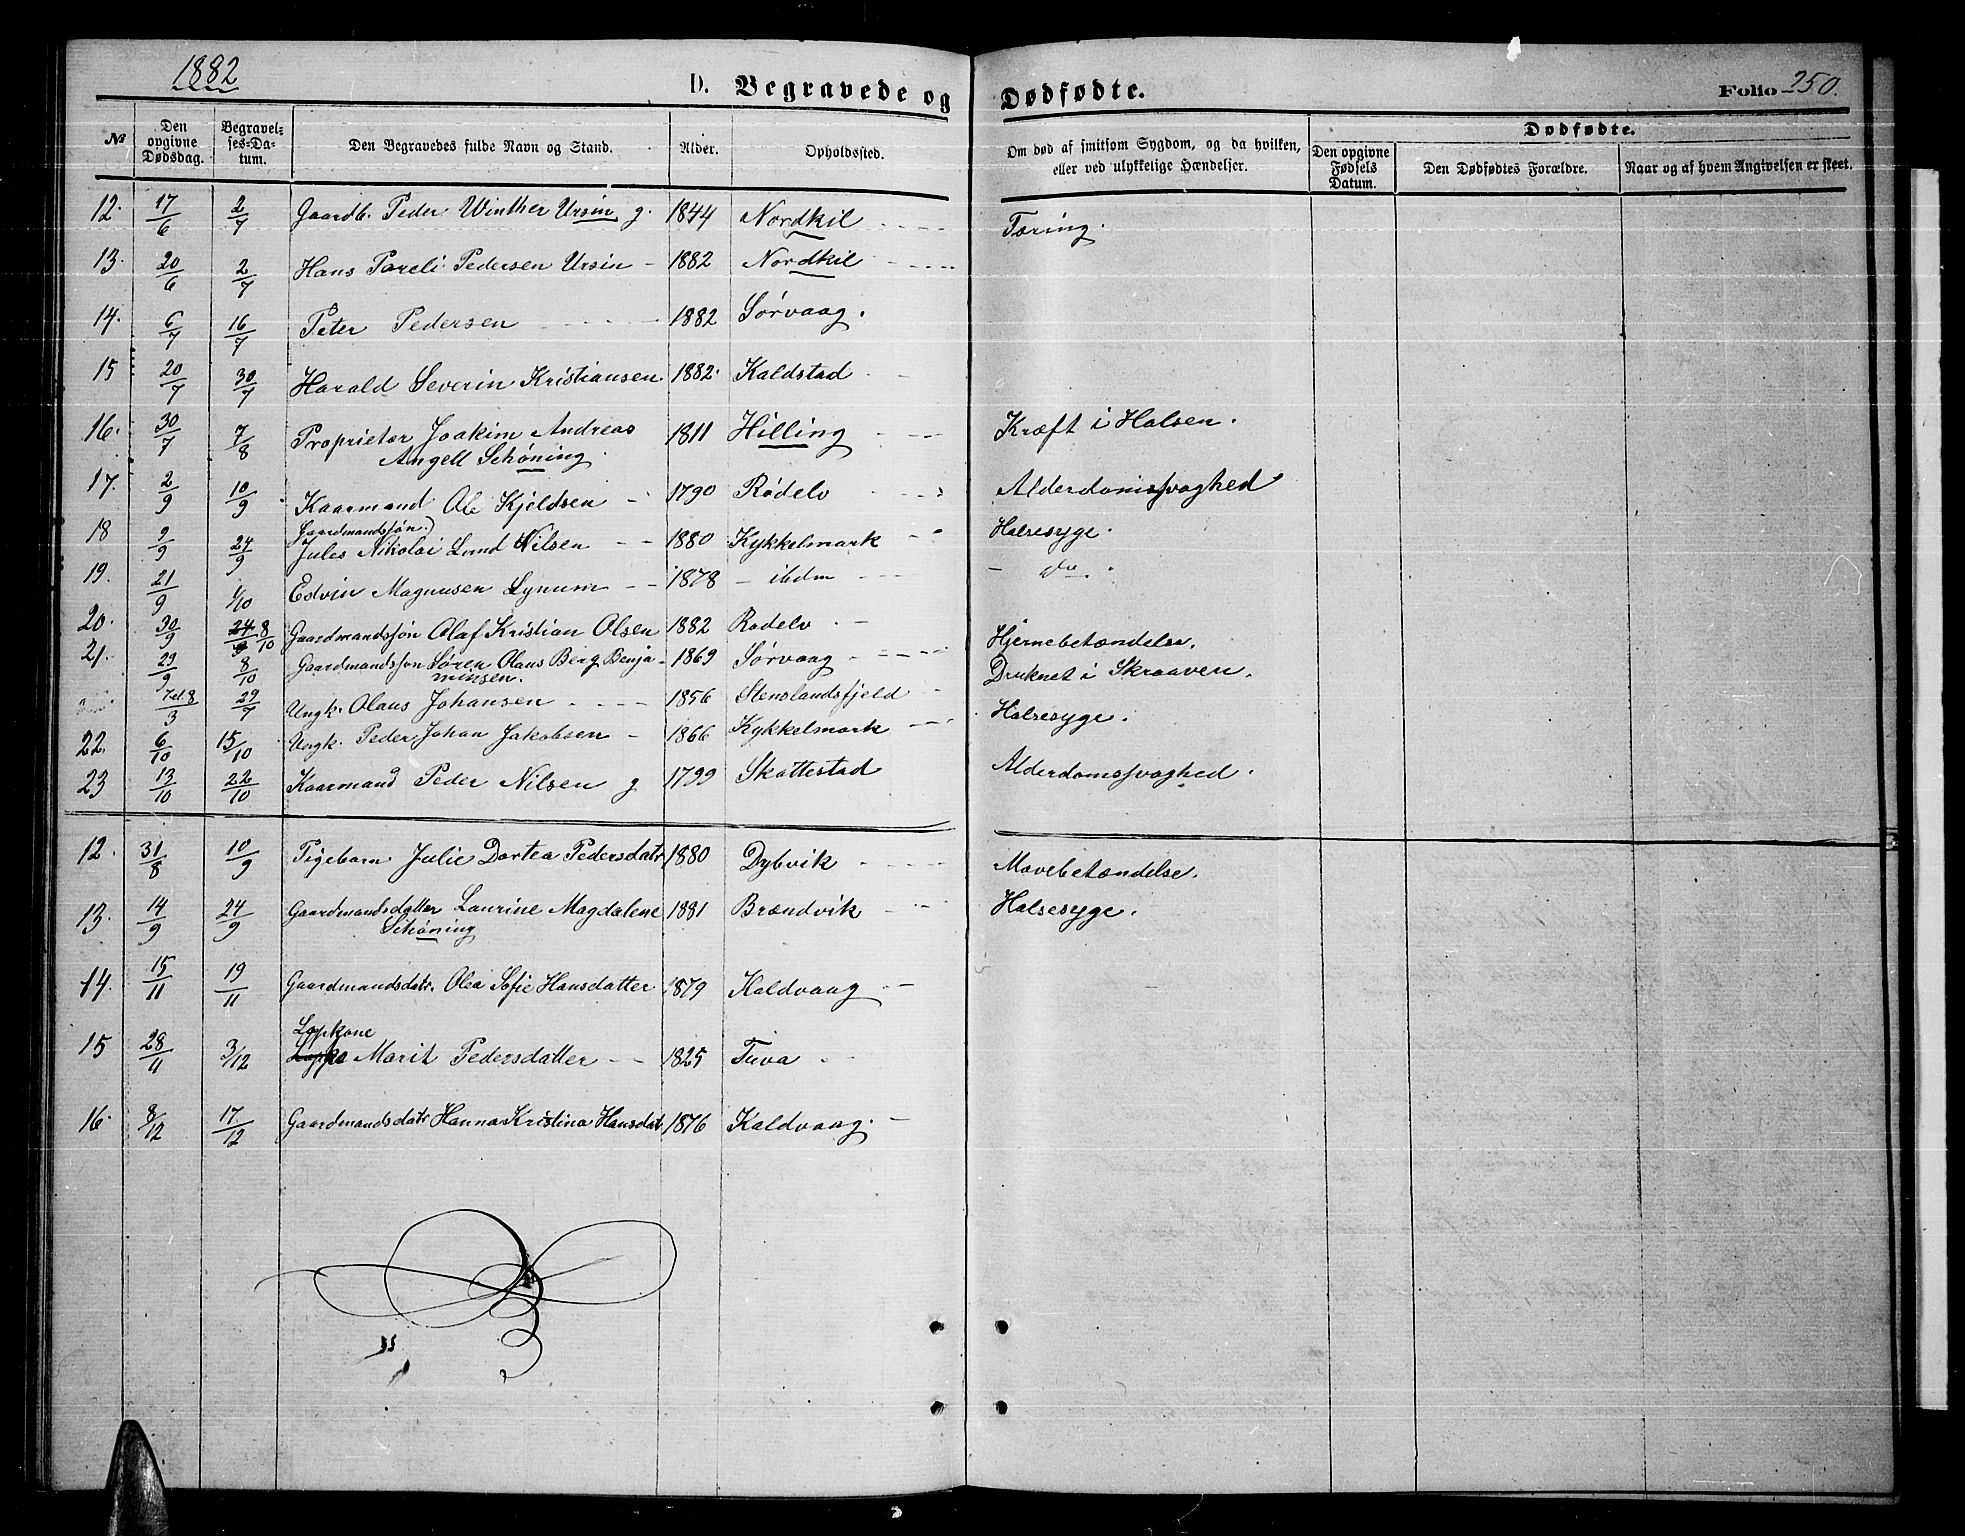 1882
D. Begravede og Dødfødte. Folio 250.
№ Den opgivne Dødsdag. Begravelses-Datum. Den Begravedes fulde Navn og Stand. Alder. Opholdssted. Om død af smitsom Sygdom, og da hvilken, eller ved ulykkelige Hændelser. Dødfødte. Den opgivne Fødsels Datum. Den Dødfødtes Forældre. Naar og af hvem Angivelsen er skeet.
12. 17/6 2/7 Gaardb. Peder Winther Ursin g. 1844 Nordkil Tæring.
13. 20/6 2/7 Hans Pareli Pedersen Ursin 1882 Nordkil
14. 6/7 16/7 Peter Pedersen 1882 Sørvaag.
15 20/7 30/7 Harald Severin Kristiansen 1882. Kaldstad
16. 30/7 7/8 Proprietær Joakim Andreas 1811 Hilling Kræft i Halsen.
Angell Schøning.
17. 2/9 10/9 Kaarmand Ole Kjeldsen 1790 Rødelv Alderdomssvaghed
Gaardmandssøn)
18 9/9 24/9 Jules Nikolai Lund Nilsen 1880 Kykkelmark Halsesyge.
19. 21/9 1/10 Edvin Magnusen Lynum 1878 ibdm do.
20. 30/9 24/9 8/10 Gaardmandssøn Olaf Kristian Olsen 1882 Rødelv Hjernebetændelse.
21. 29/9 8/10 Gaardmandssøn Søren Olaus Berg Benja- 1869 Sørvaag Druknet i Skraaven.
minsen.
8/3 29/7 Ungk. Olaus Johansen 1856 Stenslandsfjeld Halsesyge.
22. 6/10 15/10 Ungk. Peder Johan Jakobsen 1866 Kykkelmark
23 13/10 22/10 Kaarmand Peder Nilsen g 1799 Skattestad Alderdomssvaghed.
12. 31/8 10/9 Pigebarn Julie Dortea Pedersdatr 1880 Dybvik Mavebetændelse.
13. 14/9 24/9 Gaardmandsdatter Laurine Magdalene 1881 Brændvik Halsesyge.
Schøning
14. 15/11 19/11 Gaardmandsdatr. Olea Sofie Hansdatter 1879 Kaldvaag
Lapkone
15 28/11 3/12 Marit Pedersdatter 1825 Tuva
16. 8/12 17/12 Gaardmandsdatr Hanna Kristina Hansdat 1876 Kaldvaag.